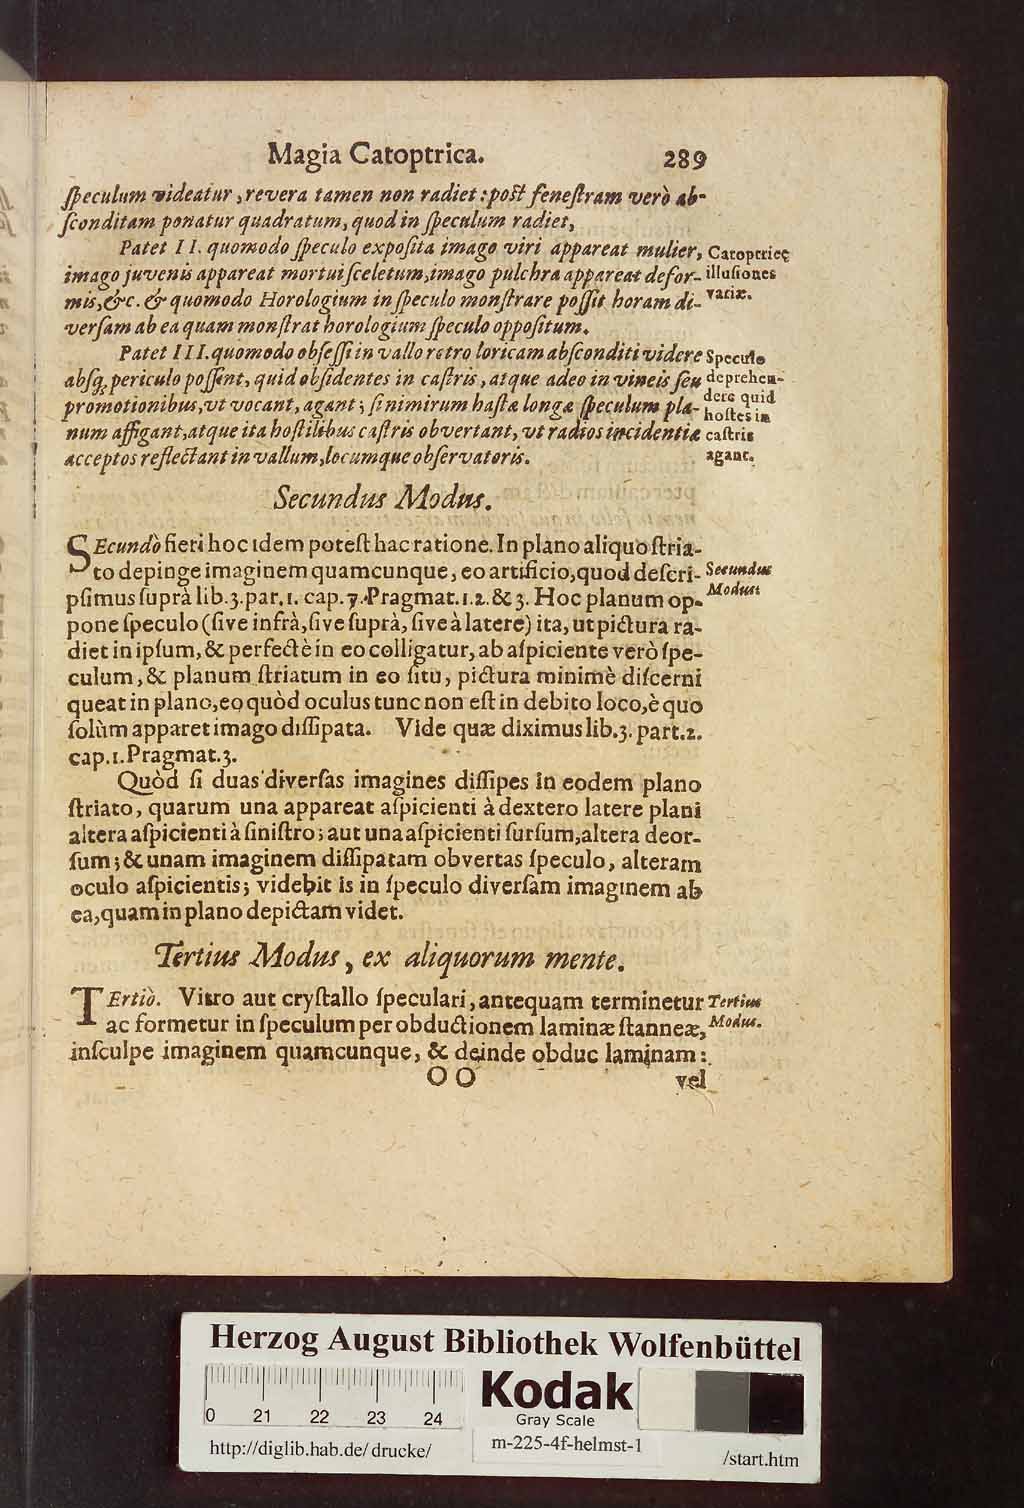 Magia Catoptrica. 289
ſpeculum videatur, revera tamen non radiet: poſt feneſtram verò ab-
ſconditam ponatur quadratum, quod in ſpeculum radiet,
Patet II. quomodo ſpeculo expoſita imago viri appareat mulier,
imago juvenis appareat mortui ſceletum, imago pulchra appareat defor-
mis, &c. & quomodo Horologium in ſpeculo monſtrare poſſit horam di-
verſam ab ea quam monſtrat horologium ſpeculo oppoſitum.
Catoptricę
illuſiones
variæ.
Patet III. quomodo obſeſſi in vallo retro loricam abſconditi videre
abſq; periculo poſſent, quid obſidentes in caſtris, atque adeo in vineis ſeu
promotionibus, vt vocant, agant; ſi nimirum haſtæ longæ ſpeculum pla-
num affigant, atque ita hoſtilibus caſtris obvertant, vt radios incidentiæ
acceptos reflectant in vallum, locumque obſervatoris.
Speculo
deprehen-
dere quid
hoſtes in
caſtris
agant.
Secundus Modus.
SEcundò fieri hoc idem poteſt hac ratione. In plano aliquo ſtria-
to depinge imaginem quamcunque, eo artificio, quod deſcri-
pſimus ſuprà lib. 3. par. 1. cap. 7. Pragmat. 1. 2. & 3. Hoc planum op-
pone ſpeculo (ſive infrà, ſive ſuprà, ſive à latere) ita, ut pictura ra-
diet in ipſum, & perfectè in eo colligatur, ab aſpiciente verò ſpe-
culum, & planum ſtriatum in eo ſitu, pictura minimè diſcerni
queat in plano, eo quòd oculus tunc non eſt in debito loco, è quo
ſolùm apparet imago diſſipata. Vide quæ diximus lib. 3. part. 2.
cap. 1. Pragmat. 3.
Secundus
Modus:
Quòd ſi duas diverſas imagines diſſipes in eodem plano
ſtriato, quarum una appareat aſpicienti à dextero latere plani
altera aſpicienti à ſiniſtro; aut una aſpicienti ſurſum, altera deor-
ſum; & unam imaginem diſſipatam obvertas ſpeculo, alteram
oculo aſpicientis; videbit is in ſpeculo diverſam imaginem ab
ea, quam in plano depictam videt.
Tertius Modus, ex aliquorum mente.
TErtiò. Vitro aut cryſtallo ſpeculari, antequam terminetur
ac formetur in ſpeculum per obductionem laminæ ſtanneæ,
inſculpe imaginem quamcunque, & deinde obduc laminam:
Tertius
Modus.
OO vel
Herzog August Bibliothek Wolfenbüttel
0 21 22 23 24
Kodak
Gray Scale
http://diglib.hab.de/drucke/
m-225-4f-helmst-1
/start.htm